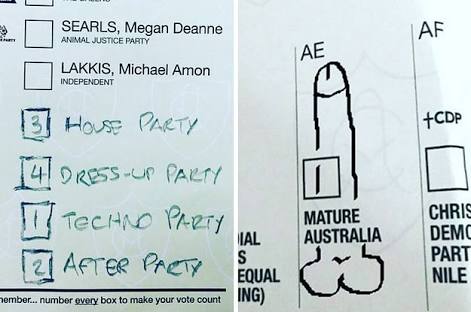 SEARLS, Megan Deanne
ANIMAL JUSTICE PARTY
LAKKIS, Michael Amon
INDEPENDENT
3 HOUSE PARTY
4 DRESS-UP PARTY
1 TECHNO PARTY
2 AFTER PARTY
number every box to make your vote count
AE
MATURE
AUSTRALIA
AF
CDP
CHRIS
DEMO
PART
NILE
IAL
S
EQUAL
ING)